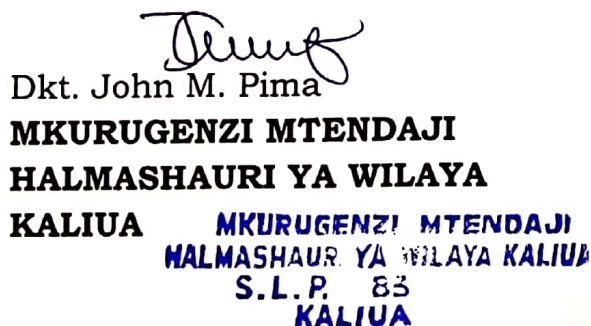 Dkt. John M. Pima
MKURUGENZI MTENDAJI
HALMASHAURI YA WILAYA
KALIUA
MKURUGENZI MTENDAJI
HALMASHAUR. YA WILAYA KALIUA
S.L.P. 83
KALIUA